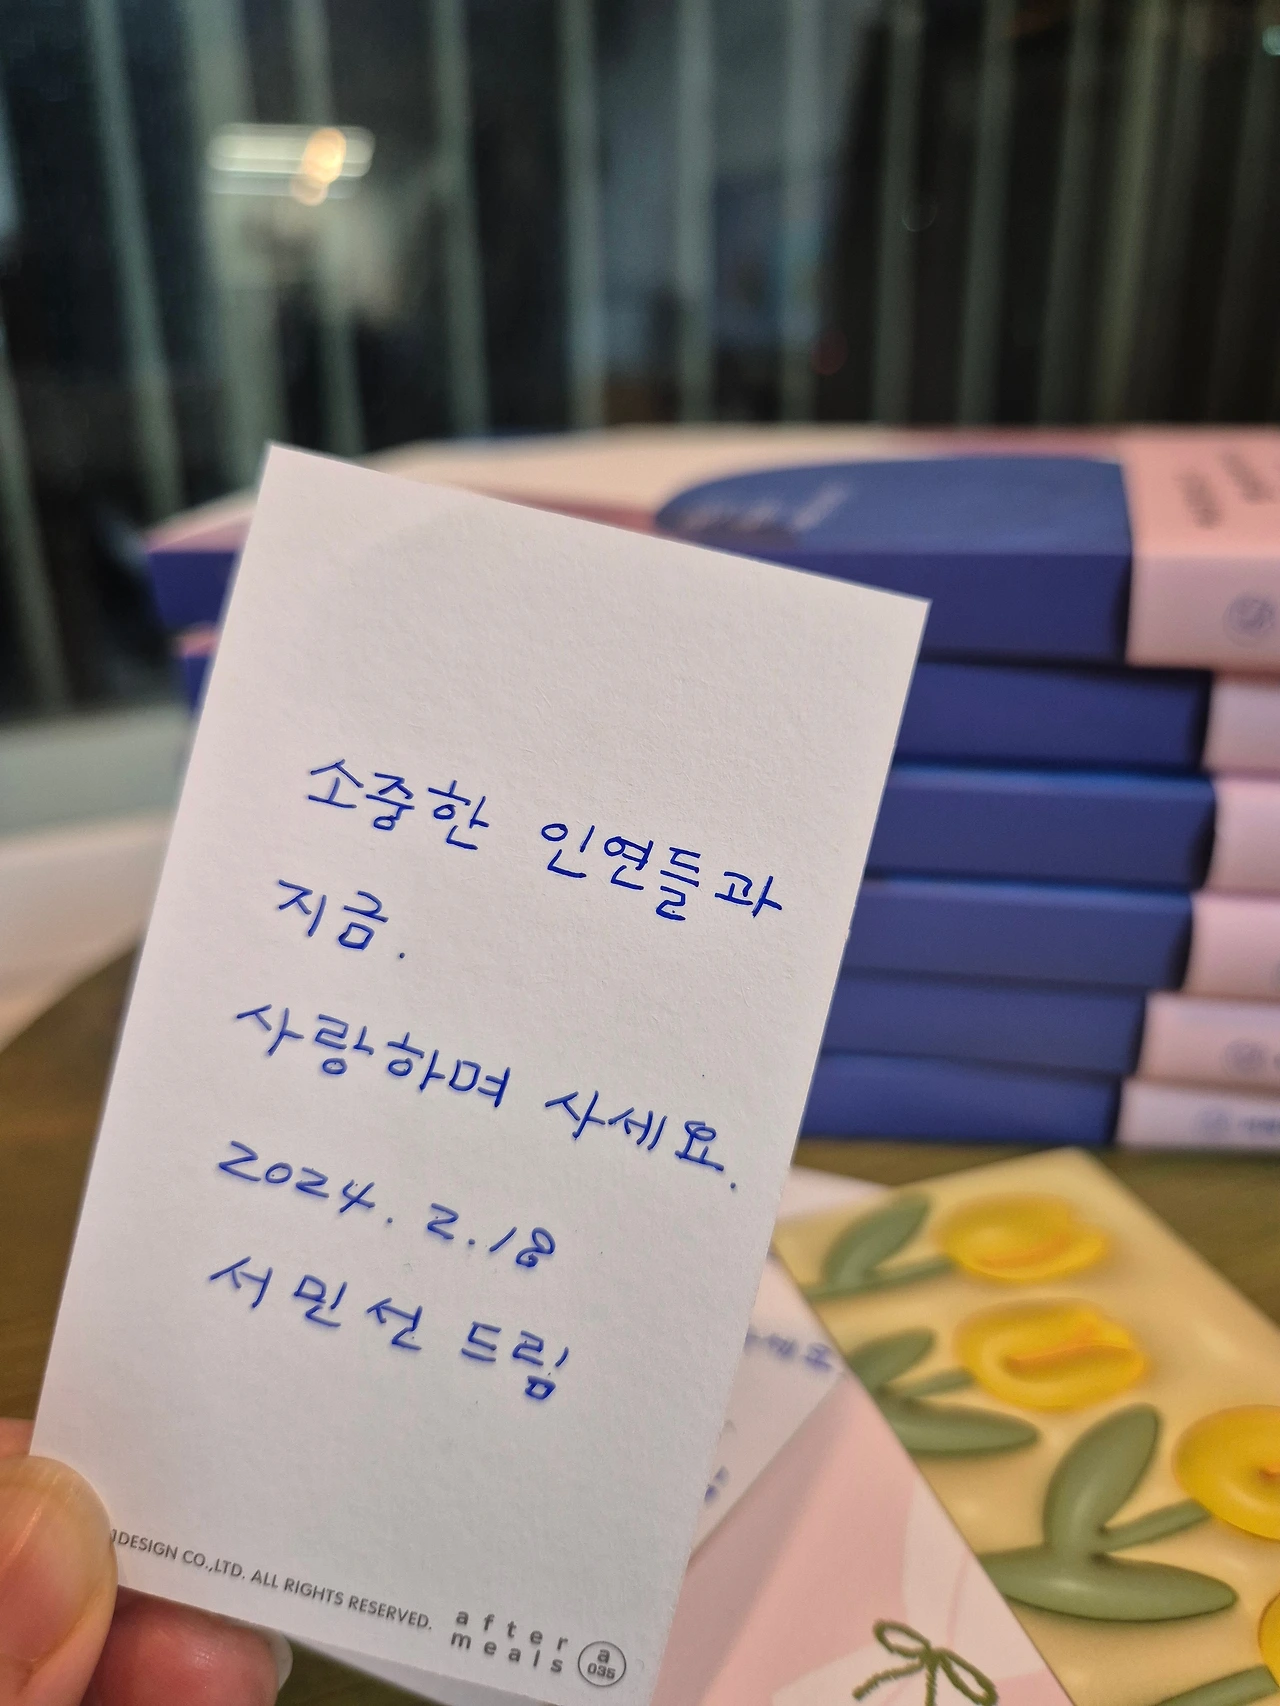 소중한 인연들과
지금.
사랑하며 사세요.
2024. 2.18
서민선 드림
DESIGN CO.,LTD. ALL RIGHTS RESERVED.
after
meals
a
035